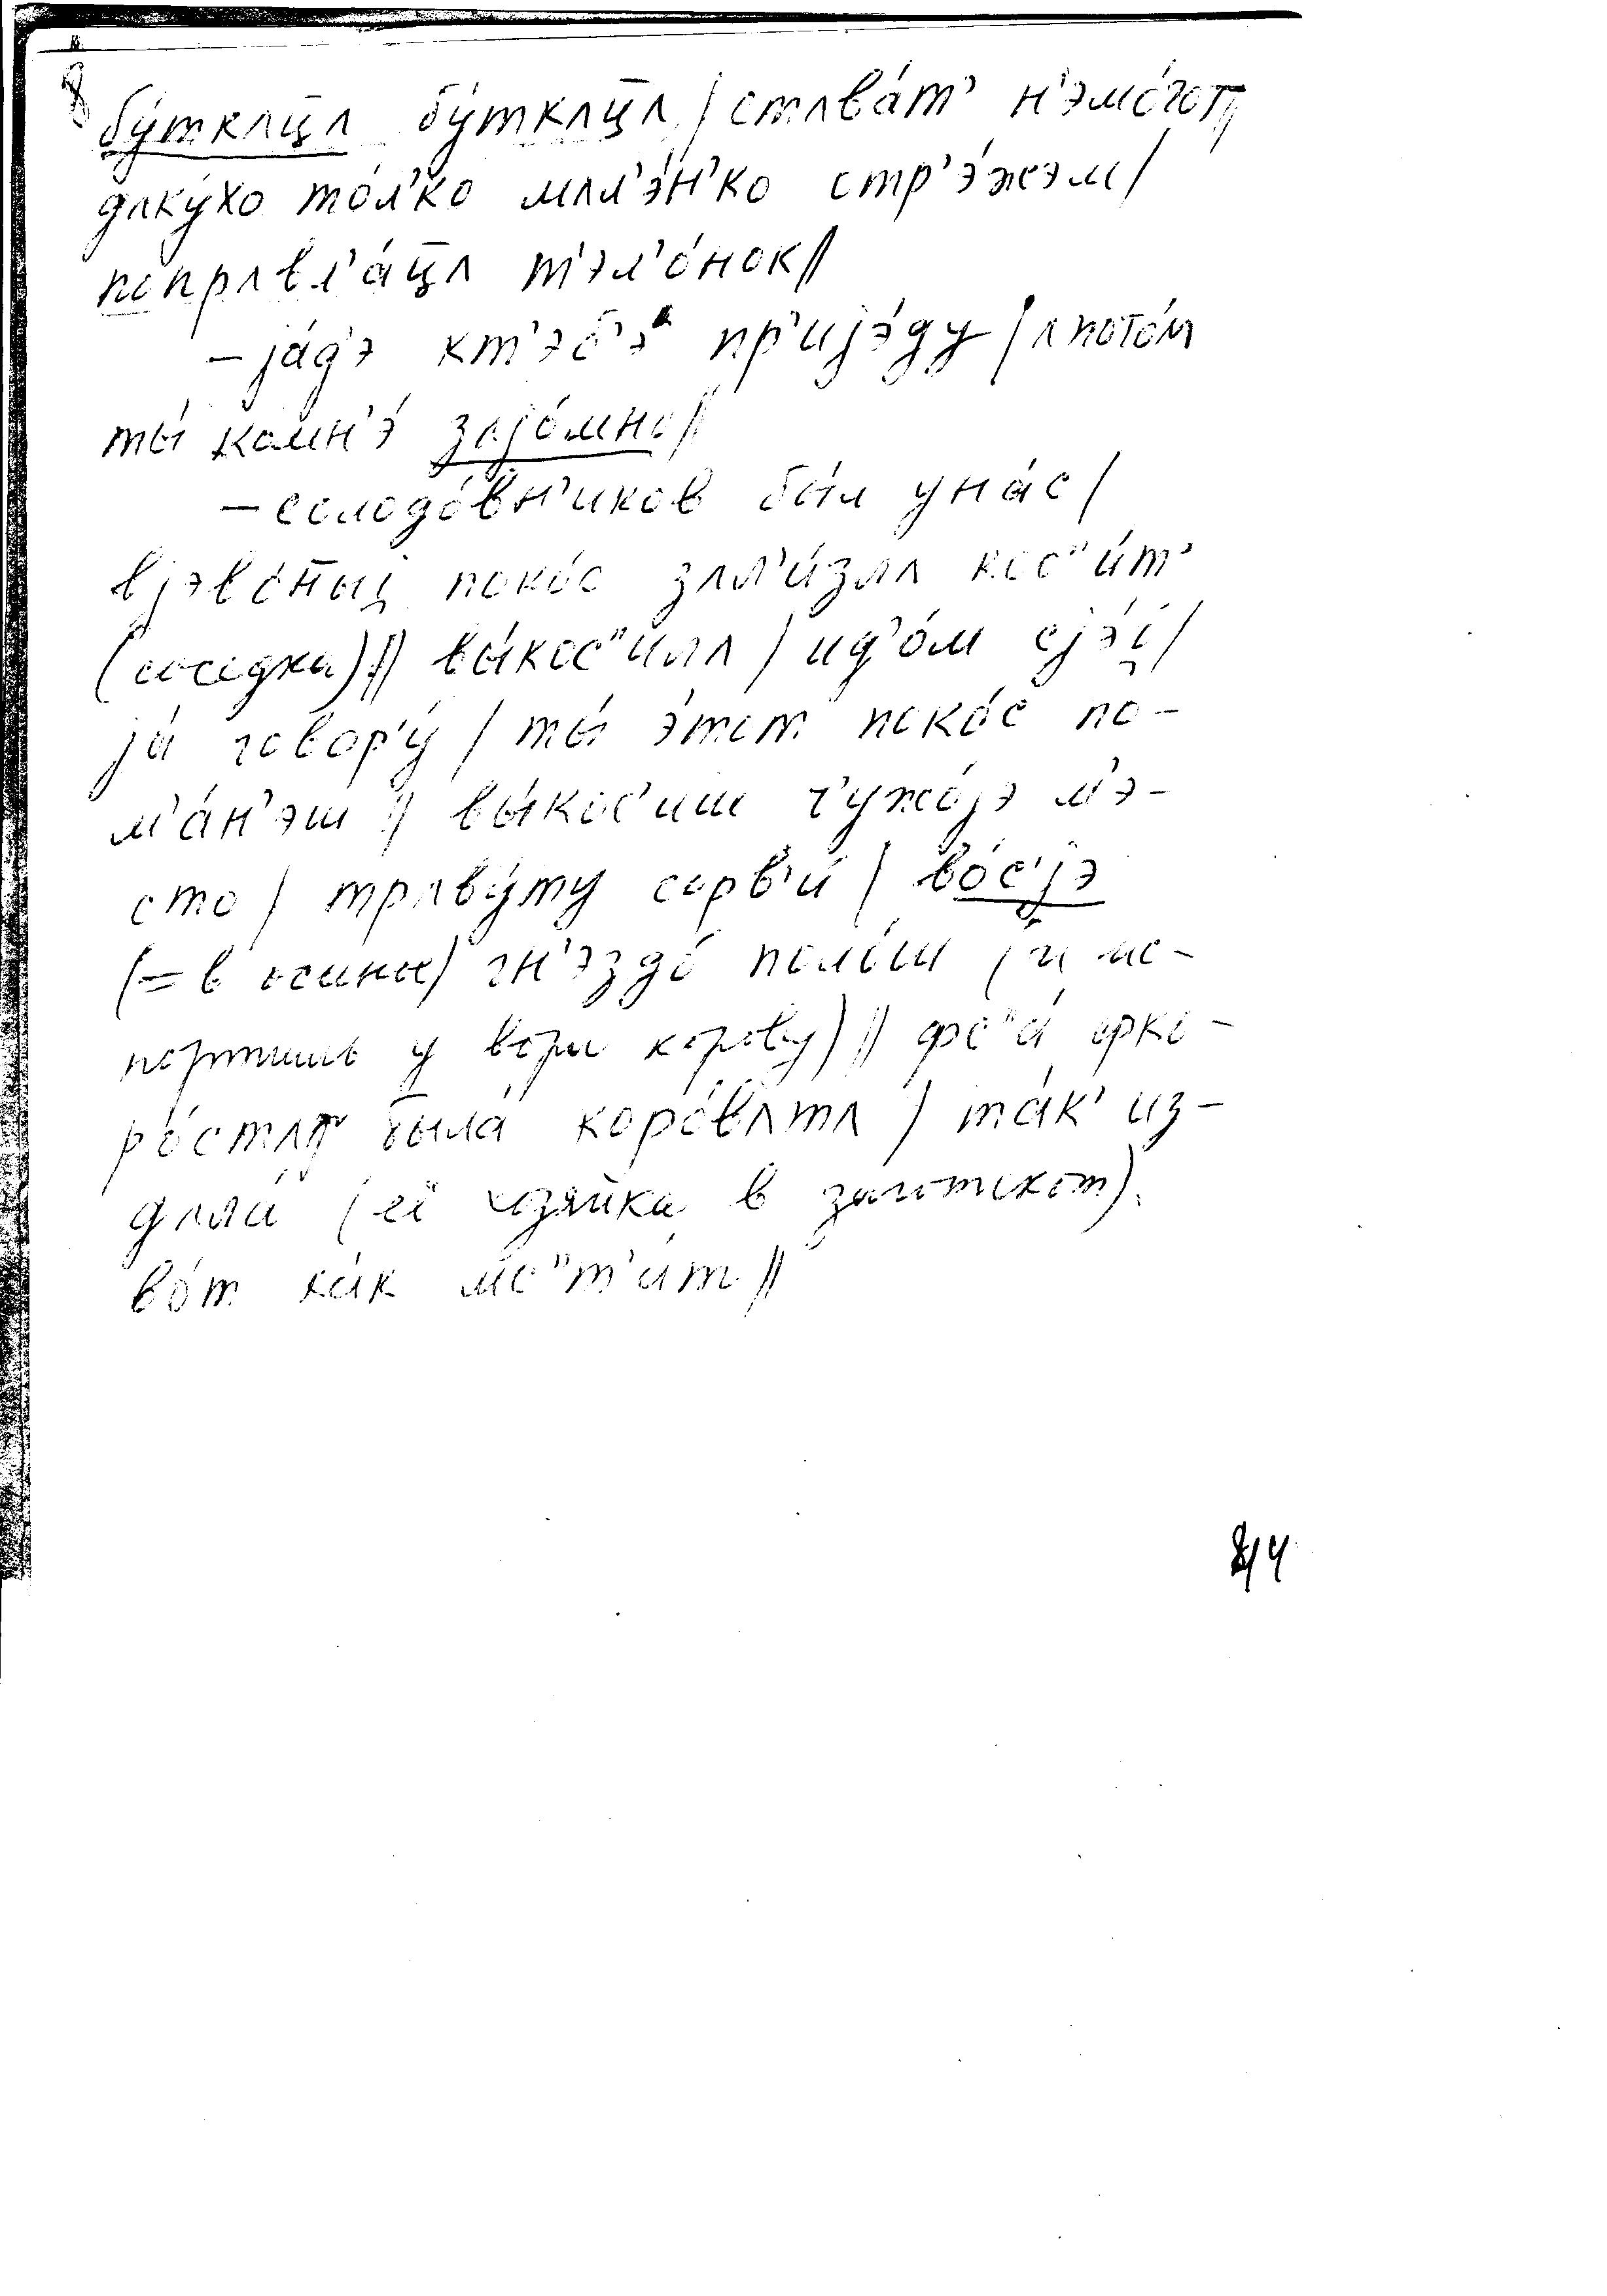 бу́тклц̄л бу́тклц̄л / стлва́т’ н’эмо́гот /
длку́хо то́л’ко млл’э́н’ко стр’э́жэм /
попрлвл’а́ц̄л т’эл’о́нок //
– ја́д’э кт’эб’э́ пр’ијэ́ду / л пото́м
ты́ комн’э́ зајо́мно //
– солодо́вн’иков бы́л уна́с /
вјэво́ныį поко́с злл’и́злл кос”и́т’
(соседка) // вы́кос”илл / ид’о́м сјэ́į /
ја́ говор’у́ / ты́ э́тот поко́с по-
м’а́н’эш // вы́кос’иш ч’ужо́јэ м’э-
сто / трлву́ту сорв’и́ / во́с’јэ
(= в осинье) гн’эздо́ поло́ш (и ис-
портишь у вора корову) // фс”а́ орко-
ро́стлл была́ коро́влтл / та́к’ из-
длла́ (её хозяйка в заготскот).
во́т ка́к мс”т’и́т //